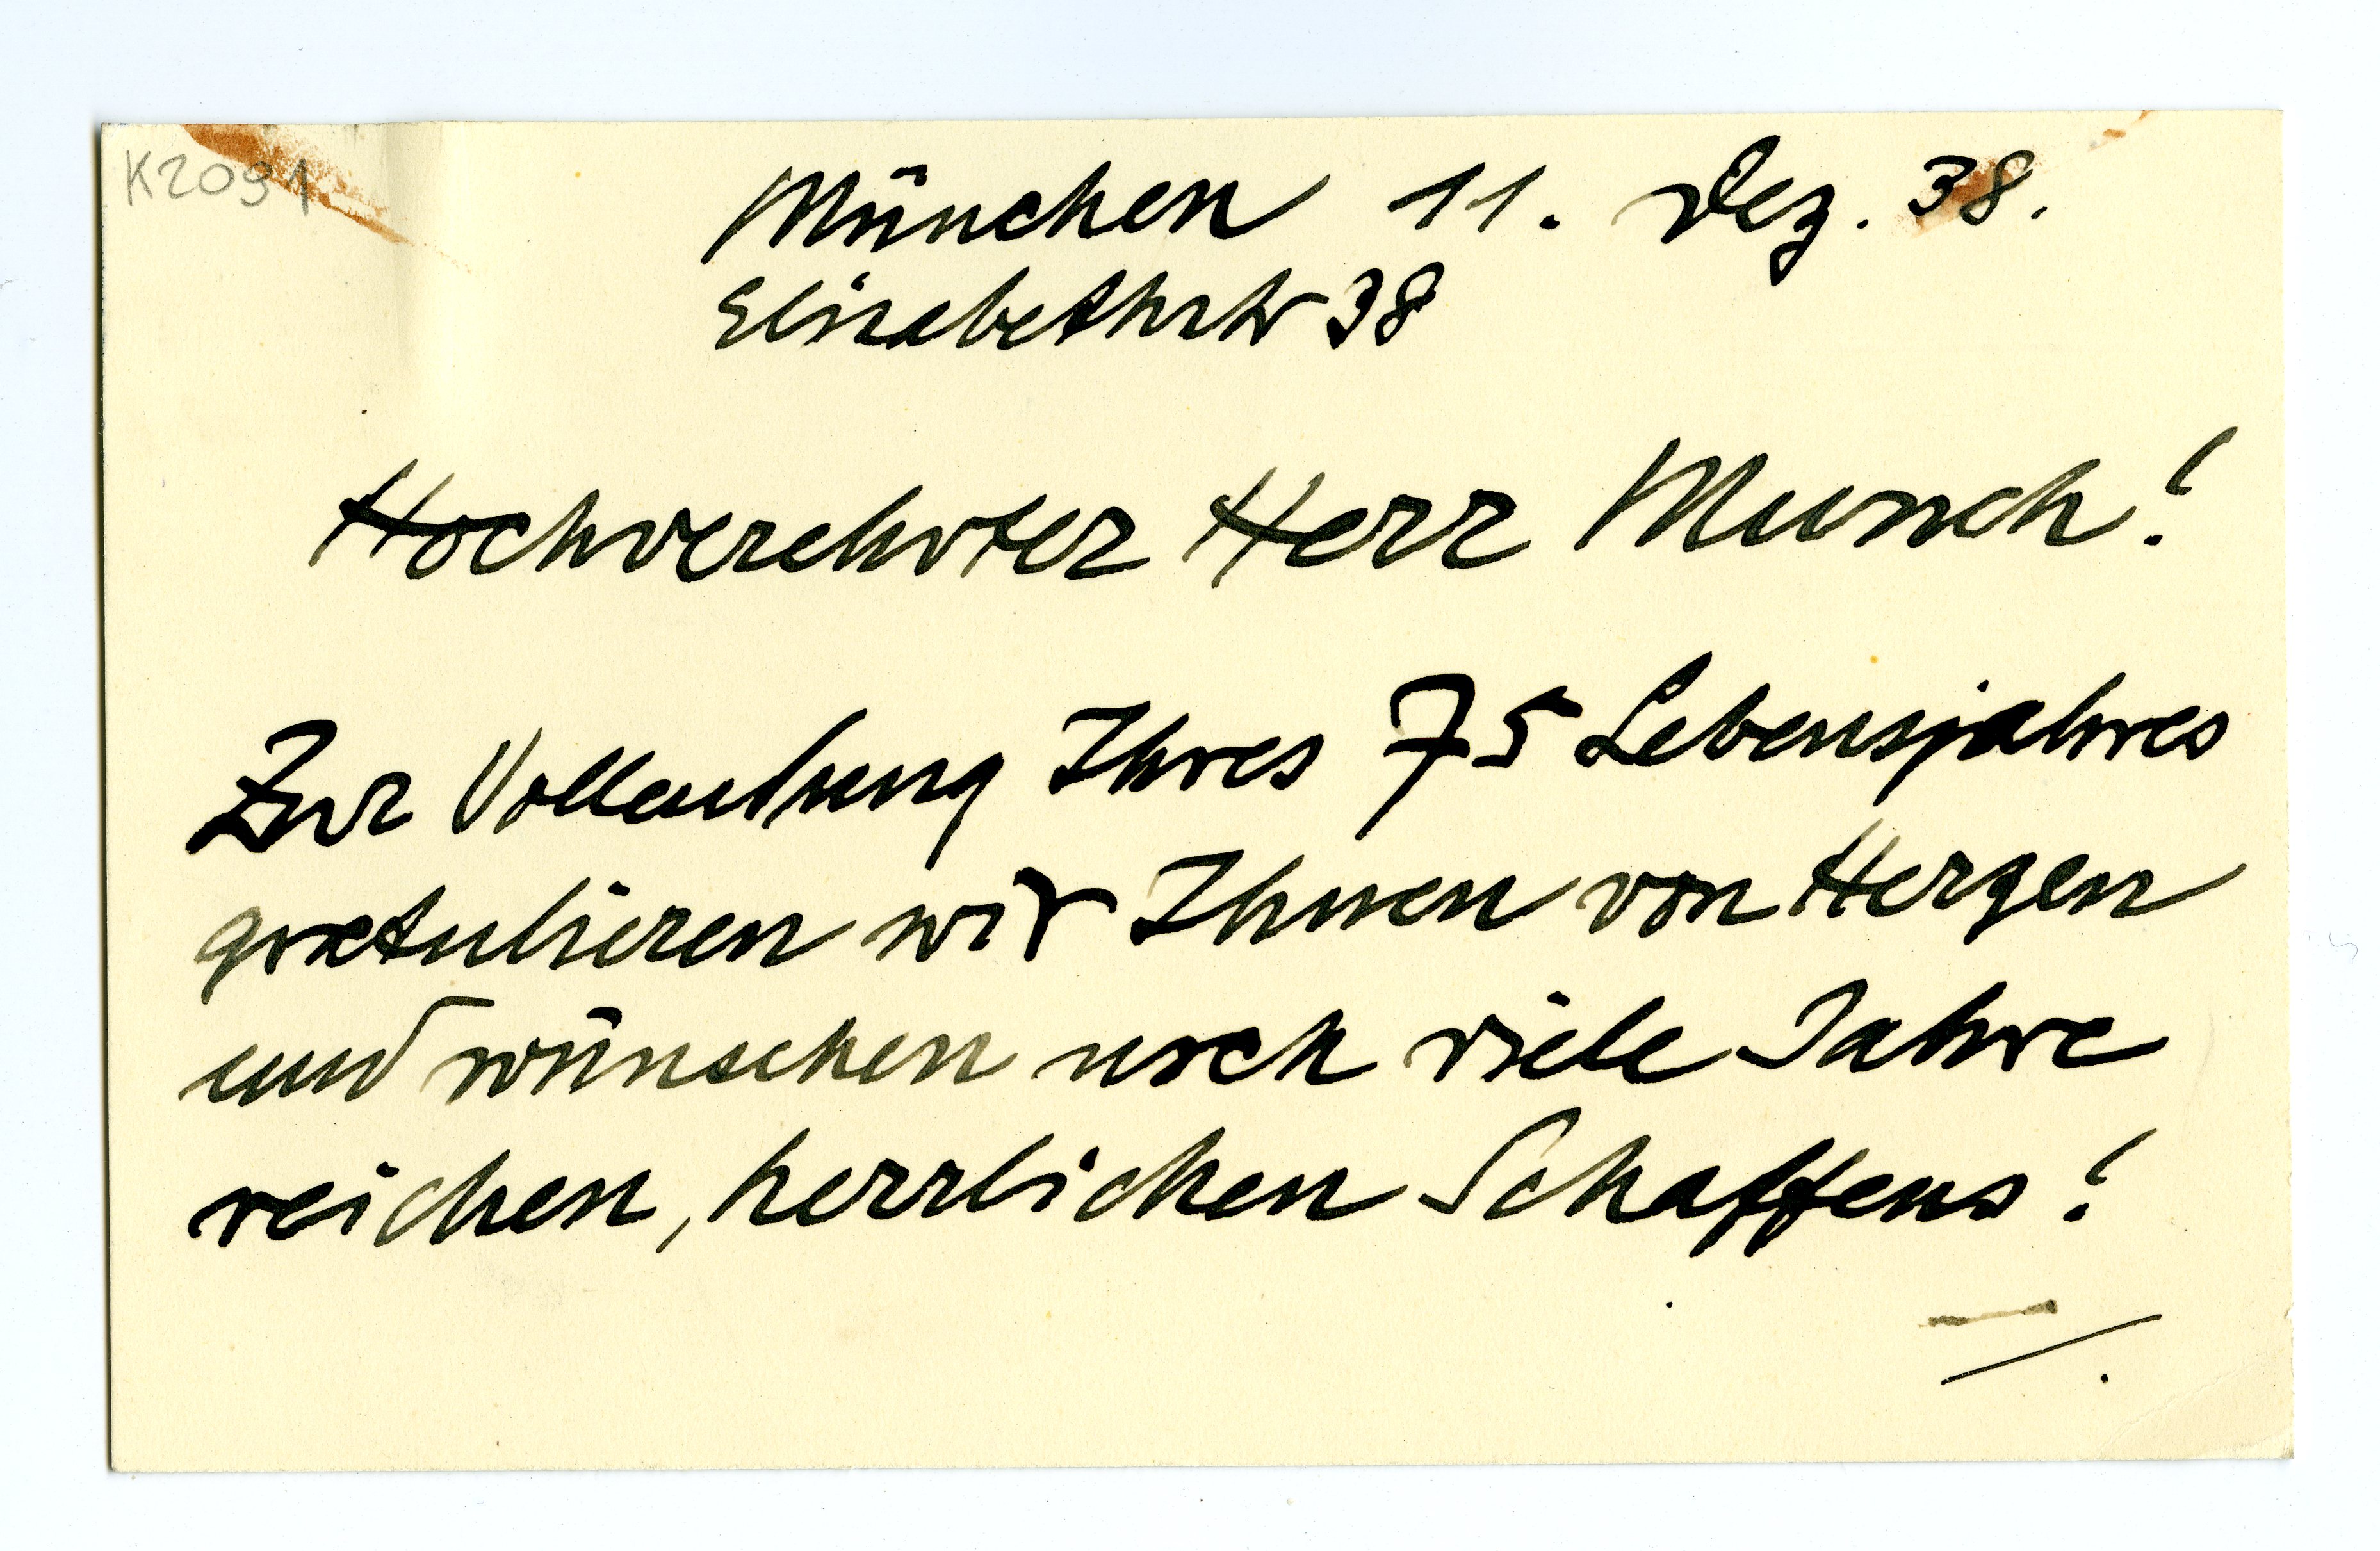 K2091
München 11. Dez. 38.
Elisabethstr 38
Hochverehrter Herr Munch!
Zur Vollendung Ihres 75 Lebensjahres
gratulieren wir Ihnen von Herzen
und wünschen noch viele Jahre
reichen, herrlichen Schaffens!